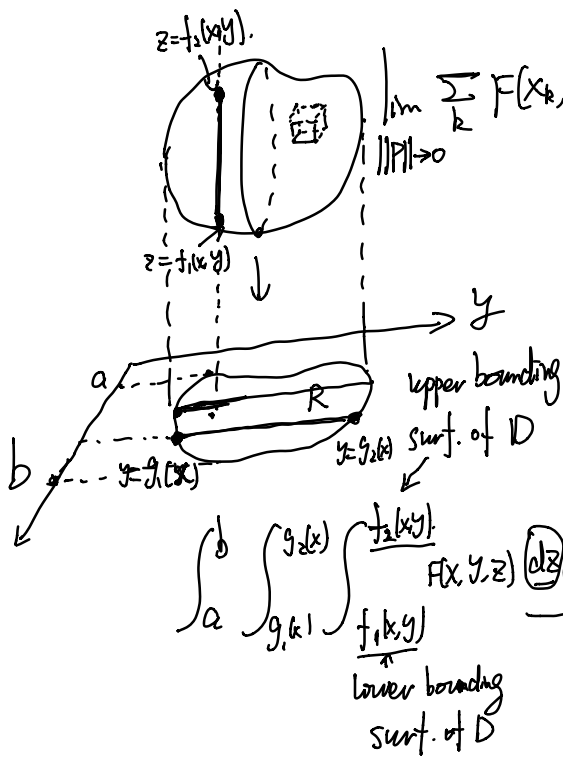 z=f₂(x,y).
lim ∑ F(xₖ,
||P||→0 k
z=f₁(x,y)
y
a
R
upper bounding
surf. of D
b
y=g₁(x)
y=g₂(x)
∫ₐᵇ ∫_{g₁(x)}^{g₂(x)} ∫_{f₁(x,y)}^{f₂(x,y).} F(x,y,z) dz
lower bounding
surf. of D